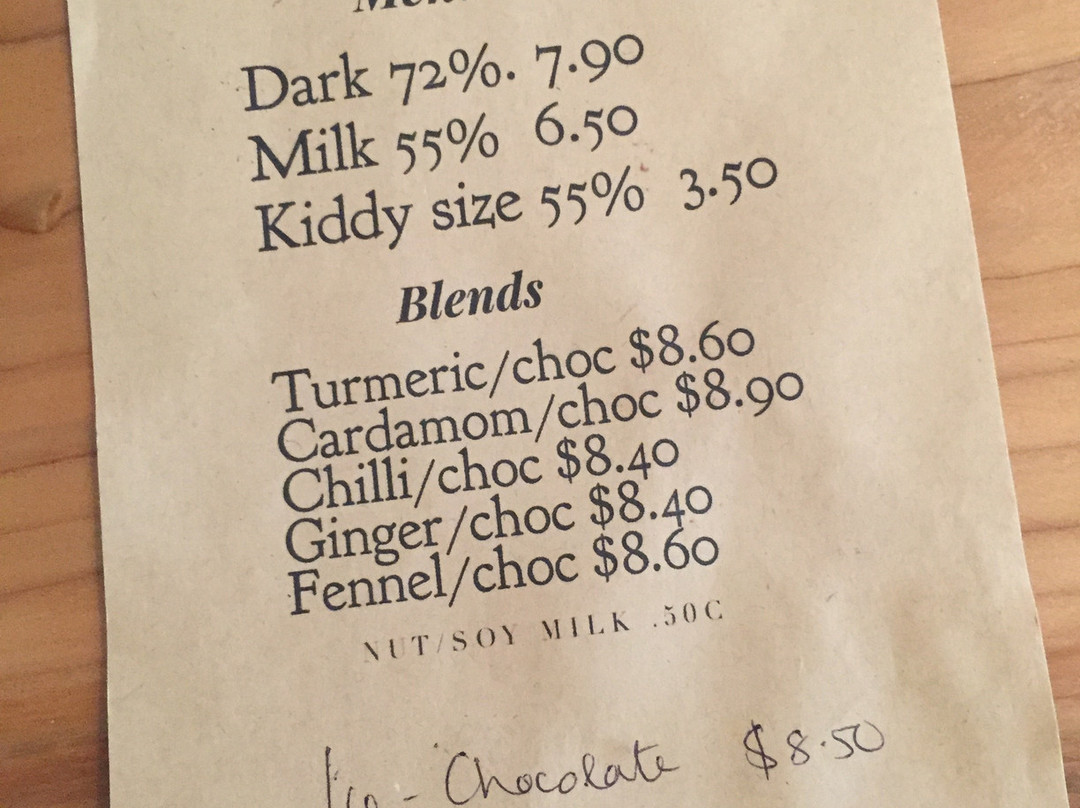 Dark 72%. 7.90
Milk 55% 6.50
Kiddy size 55% 3.50
Blends
Turmeric/choc $8.60
Cardamom/choc $8.90
Chilli/choc $8.40
Ginger/choc $8.40
Fennel/choc $8.60
NUT/SOY MILK .50C
- Chocolate $8.50